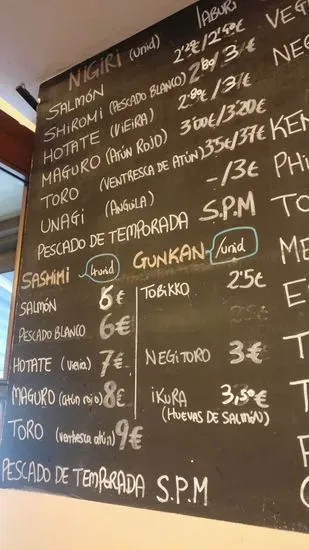 NIGIRI (unid) /ABURI
SALMÓN 2'20/2'40€
SHIROMI (PESCADO BLANCO) 2'80/3€
HOTATE (VIEIRA) 2'80/3€
MAGURO (ATÚN ROJO) 3'00€/3'20€
TORO (VENTRESCA DE ATÚN) 3'5€/3'7€
UNAGI (ANGUILA) -/3€
PESCADO DE TEMPORADA S.P.M
SASHIMI 4unid
SALMÓN 6€
PESCADO BLANCO 6€
HOTATE (vieira) 7€
MAGURO (atún rojo) 8€
TORO (ventresca atún) 9€
PESCADO DE TEMPORADA S.P.M
GUNKAN /unid
TOBIKKO 2'5€
NEGITORO 3€
IKURA 3,50€
(HUEVAS DE SALMÓN)
VEG
NEG
KEN
PHI
TO
ME
E
T
T